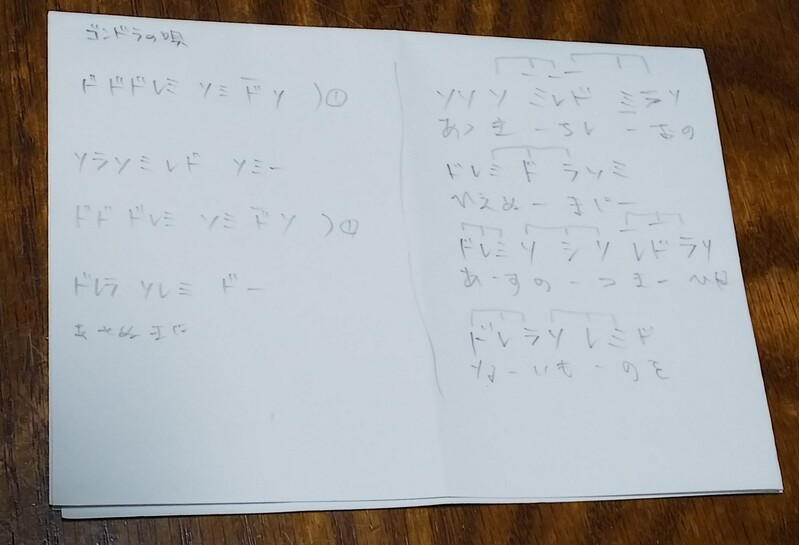 ゴンドラの唄
ドドドレミ ソミドソ )①
ソラソミレド ソミー
ドド ドレミ ソミドソ )①
ドレラ ソレミ ドー
あせぬまに
ソソソ ミレド ミラソ
あつき ーちし ーおの
ドレミ ド ラソミ
ひえぬ ー まにー
ドレミソ シソ レドラソ
あーすの ー つきー ひは
ドレラソ レミド
なーいも ーのを